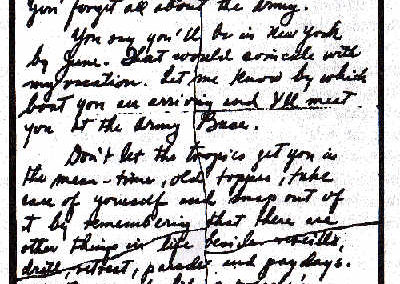 You'll forget all about the Army.
You say you'll be in New York
by June. That would coincide with
my vacation. Let me know by which
boat you are arriving and I'll meet
you at the Army Base.
Don't let the tropics get you in
the mean-time, old topper, take
care of yourself and snap out of
it by remembering that there are
other things in life beside reveille,
drill, retreat, parades and paydays.